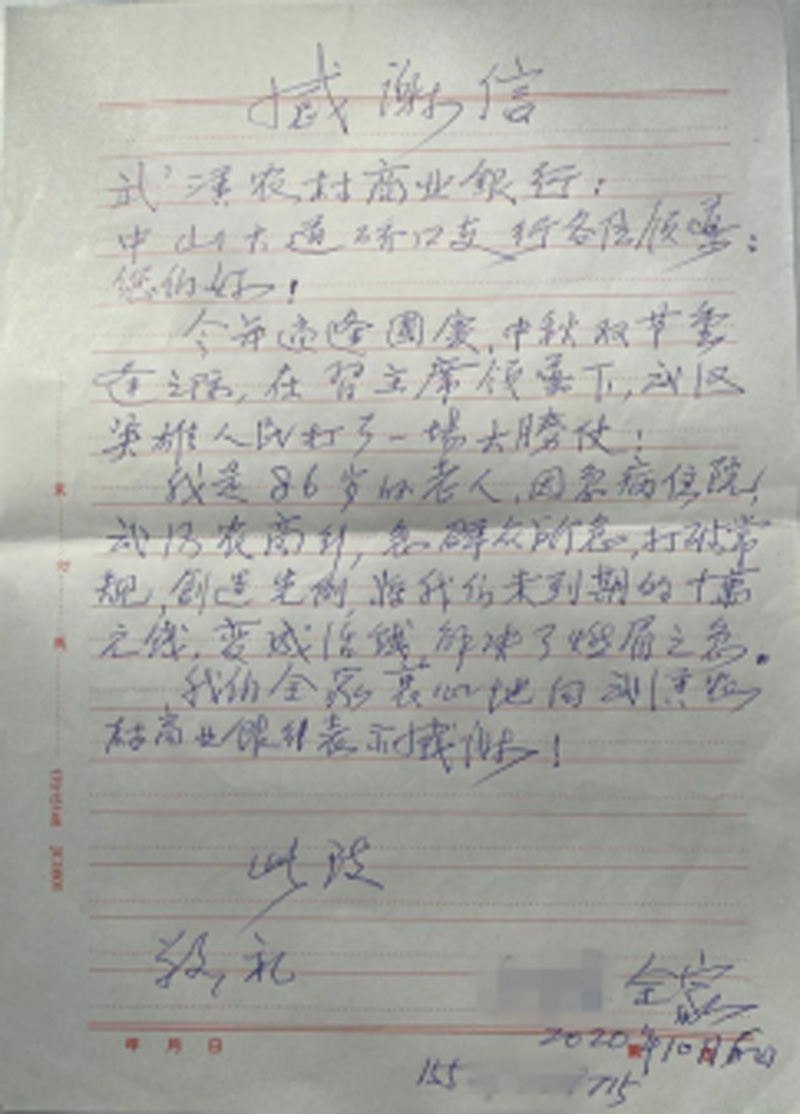 撼谢信
武汉农村商业銀行：
中山大道硚口支行各位领导：
您们好！
今年适逢國庆、中秋双节重
逢之际，在習主席领导下，武汉
英雄人民打了一場大勝仗！
我是86岁的老人，因急病住院，
武汉农商行，急群众所急，打破常
规，創造先例，将我们未到期的十萬
元钱，变成活钱，解决了燃眉之急。
我们全家衷心地向武漢农
村商业银行表示撼谢！
此致
敬礼
全家
2020年10月
年 月 日
155 715